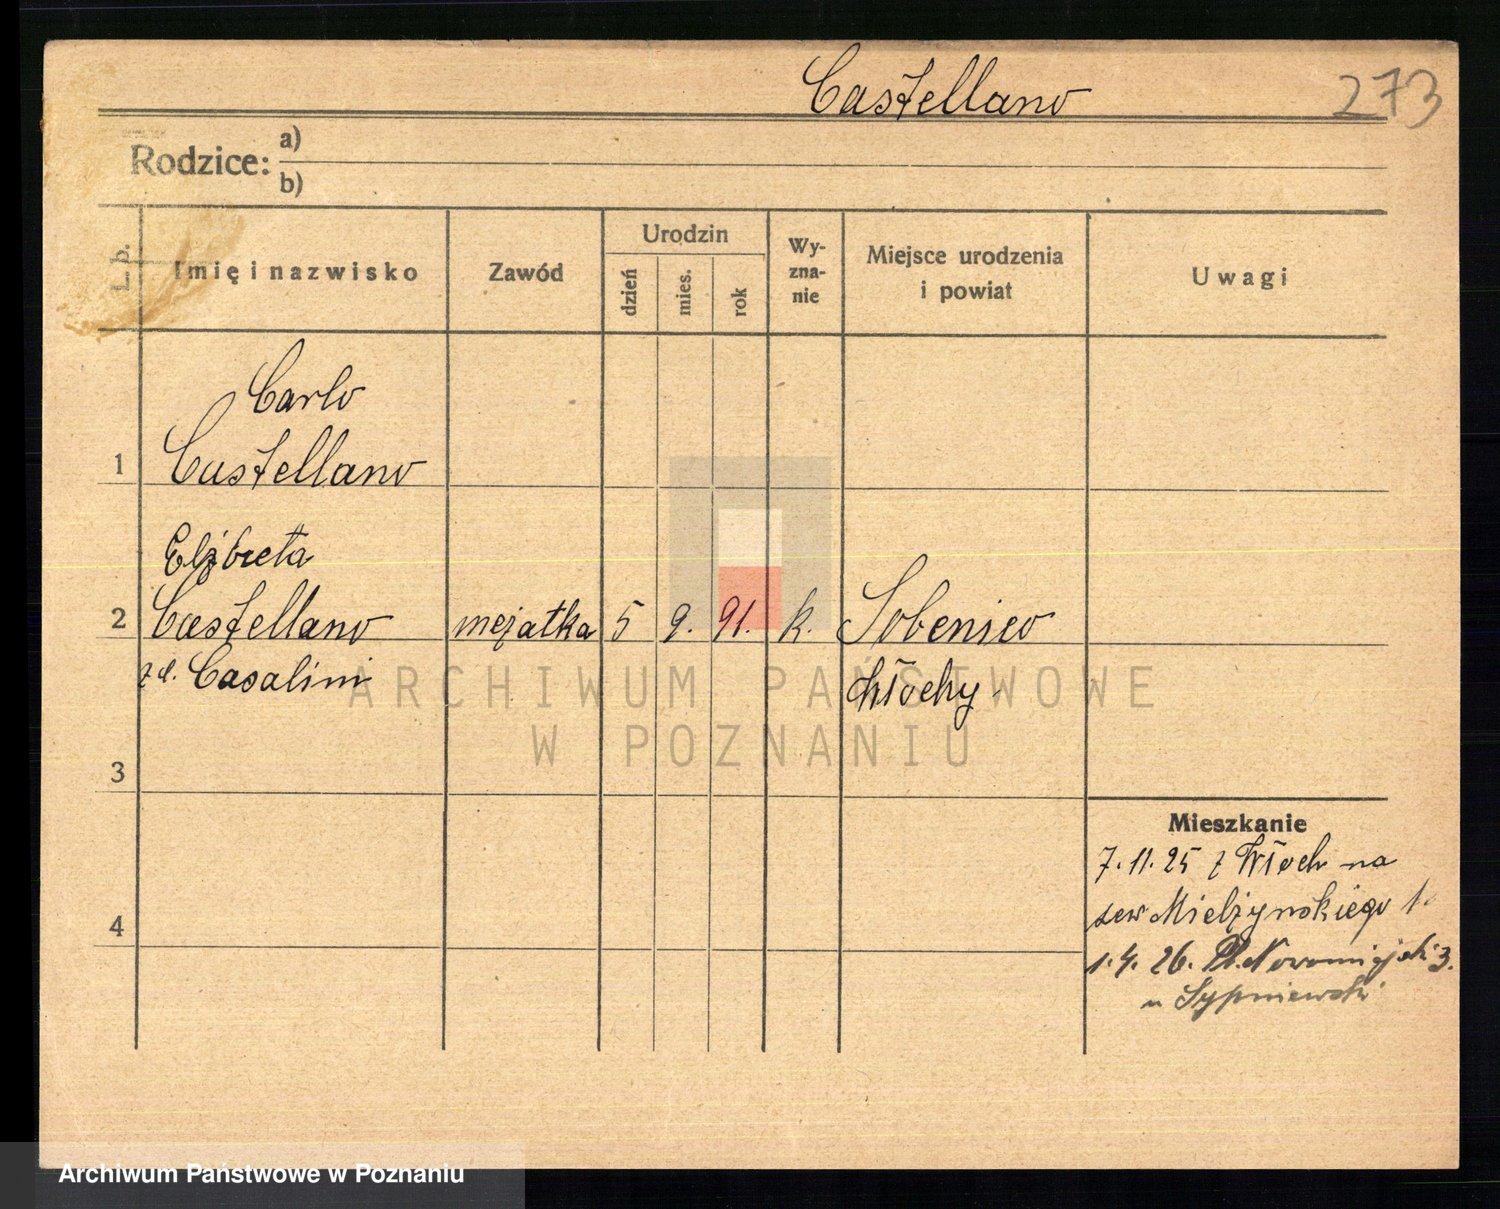 Castellano
273
Rodzice:
a)
b)
L. b.
Imię i nazwisko
Zawód
Urodzin
dzień
mies.
rok
Wy-
zna-
nie
Miejsce urodzenia
i powiat
Uwagi
Carlo
1
Castellano
Elżbieta
2 Castellano mężatka 5 9. 91. k. Sobenico
z d. Casalini
Włochy
3
4
Mieszkanie
7. 11. 25 z Włoch na
sew Mielżynskiego 1
1. 4. 26. Pl. Nowomiejski 3.
u Sypniewski
ARCHIWUM PAŃSTWOWE
W POZNANIU
Archiwum Państwowe w Poznaniu